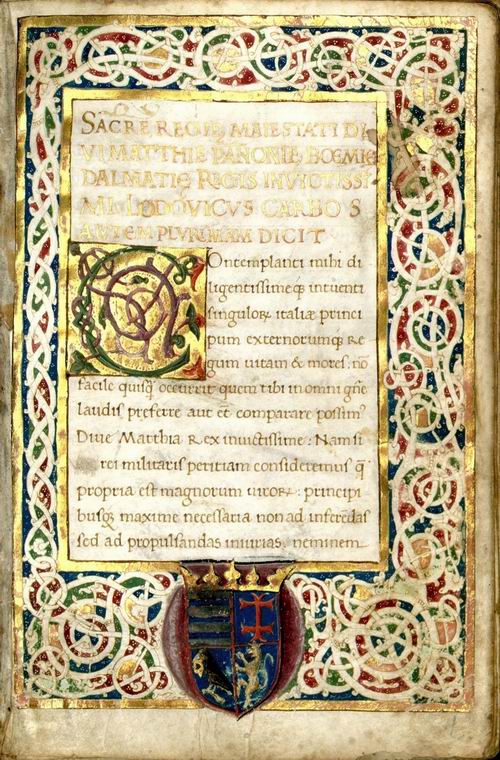 SACRE REGIĘ MAIESTATI DI
VI MATTHIĘ PANONIĘ, BOEMIĘ
DALMATIĘ REGIS INVICTISSI
MI. LODOVICVS CARBO S
ALVTEM PLVRIMAM DICIT
Contemplanti mihi di
ligentissimeq; intuenti
singuloꝝ italiæ princi
pum externorumq; Re
gum uitam & mores: nō
facile quisq̄ occurrit quem tibi in omni gñe
laudis preferre aut ēt comparare possim?
Diue Matthia Rex inuictissime: Nam si
rei militaris peritiam consideremus q̄
propria est magnorum uiroꝝ: principi
busq; maxime necessaria non ad inferēdas
sed ad propulsandas iniurias, neminem